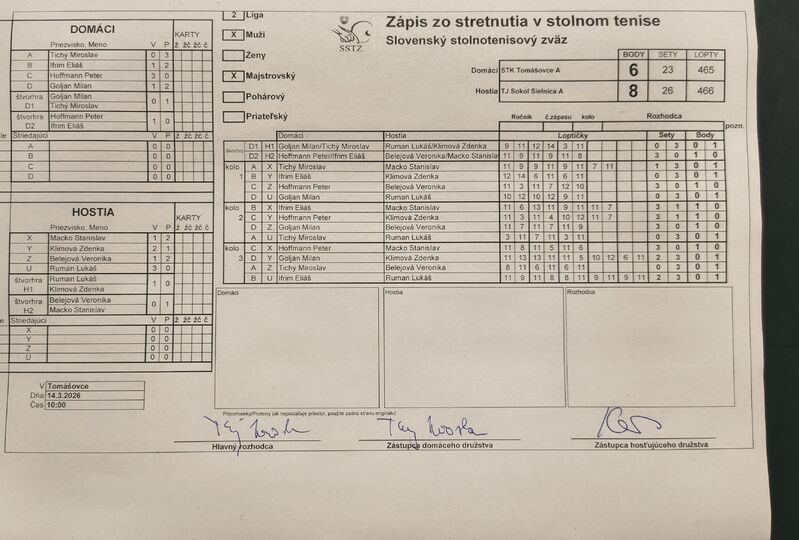 2 Liga
X Muži
Ženy
X Majstrovský
Pohárový
Priateľský
SSTZ
Zápis zo stretnutia v stolnom tenise
Slovenský stolnotenisový zväz
BODY SETY LOPTY
Domáci STK Tomášovce A 6 23 465
Hostia TJ Sokol Sielnica A 8 26 466
DOMÁCI KARTY
Priezvisko, Meno V P ž žč žč č
A Tichý Miroslav 0 3
B Ifrim Eliáš 1 2
C Hoffmann Peter 3 0
D Goljan Milan 1 2
štvorhra D1 Goljan Milan 0 1
Tichý Miroslav
štvorhra D2 Hoffmann Peter 1 0
Ifrim Eliáš
Striedajúci V P ž žč žč č
A 0 0
B 0 0
C 0 0
D 0 0
HOSTIA KARTY
Priezvisko, Meno V P ž žč žč č
X Macko Stanislav 1 2
Y Klimová Zdenka 2 1
Z Belejová Veronika 1 2
U Ruman Lukáš 3 0
štvorhra H1 Ruman Lukáš 1 0
Klimová Zdenka
štvorhra H2 Belejová Veronika 0 1
Macko Stanislav
Striedajúci V P ž žč žč č
X 0 0
Y 0 0
Z 0 0
U 0 0
V Tomášovce
Dňa 14.3.2026
Čas 10:00
Ročník č.zápasu kolo Rozhodca
pozn.
Domáci Hostia Loptičky Sety Body
D1 H1 Goljan Milan/Tichý Miroslav Ruman Lukáš/Klimová Zdenka 9 11 12 14 3 11 0 3 0 1
D2 H2 Hoffmann Peter/Ifrim Eliáš Belejová Veronika/Macko Stanislav 11 9 11 9 11 8 3 0 1 0
kolo 1 A X Tichý Miroslav Macko Stanislav 11 9 9 11 9 11 7 11 1 3 0 1
B Y Ifrim Eliáš Klimová Zdenka 12 14 6 11 6 11 0 3 0 1
C Z Hoffmann Peter Belejová Veronika 11 3 11 7 12 10 3 0 1 0
D U Goljan Milan Ruman Lukáš 10 12 10 12 9 11 0 3 0 1
kolo 2 B X Ifrim Eliáš Macko Stanislav 11 6 13 11 9 11 11 7 3 1 1 0
C Y Hoffmann Peter Klimová Zdenka 11 3 11 4 10 12 11 7 3 1 1 0
D Z Goljan Milan Belejová Veronika 11 7 11 7 11 9 3 0 1 0
A U Tichý Miroslav Ruman Lukáš 3 11 7 11 3 11 0 3 0 1
kolo 3 C X Hoffmann Peter Macko Stanislav 11 8 11 5 11 6 3 0 1 0
D Y Goljan Milan Klimová Zdenka 11 13 13 11 11 5 10 12 6 11 2 3 0 1
A Z Tichý Miroslav Belejová Veronika 8 11 6 11 6 11 0 3 0 1
B U Ifrim Eliáš Ruman Lukáš 11 9 11 8 8 11 9 11 9 11 2 3 0 1
Domáci Hostia Rozhodca
Pripomienky/Protesty (ak nepostačuje priestor, použite zadnú stranu originálu)
Hlavný rozhodca Zástupca domáceho družstva Zástupca hosťujúceho družstva